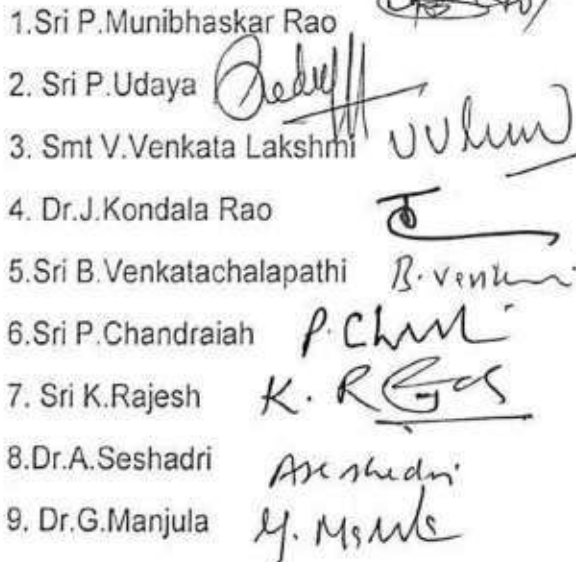 1.Sri P.Munibhaskar Rao
2. Sri P.Udaya
3. Smt V.Venkata Lakshmi
4. Dr.J.Kondala Rao
5.Sri B.Venkatachalapathi B.
6.Sri P.Chandraiah P.
7. Sri K.Rajesh K.
8.Dr.A.Seshadri
9. Dr.G.Manjula